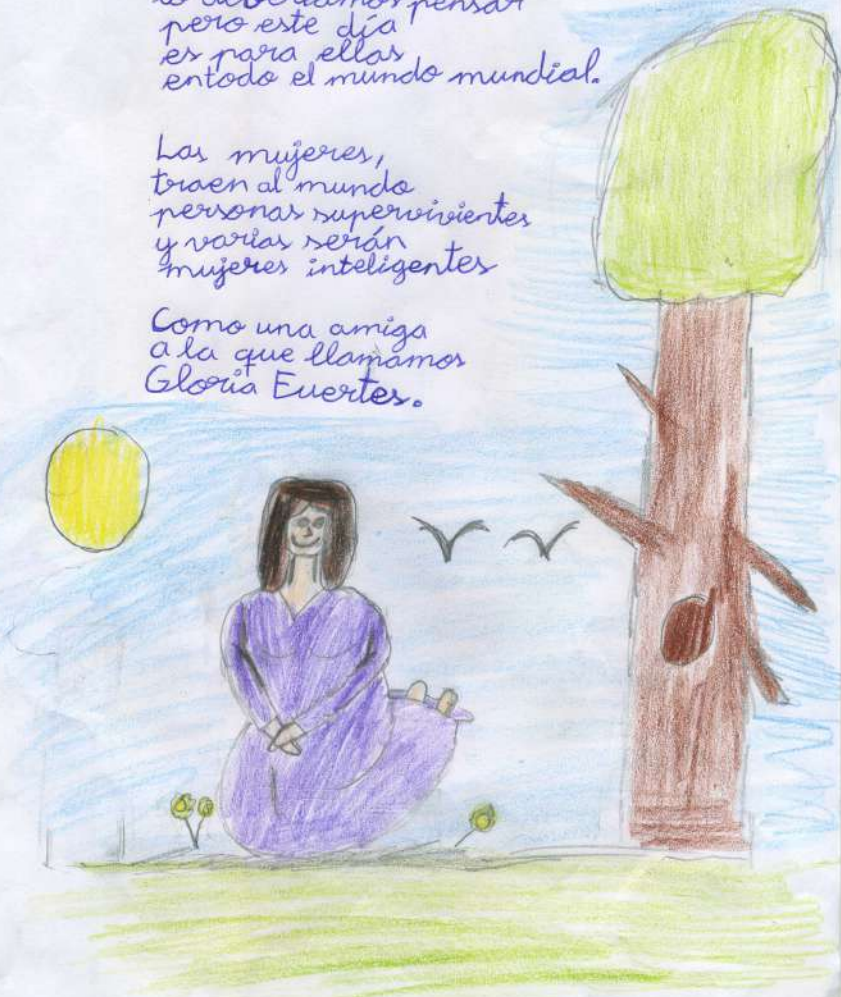 lo deberíamos pensar
pero este día
es para ellas
entodo el mundo mundial.
Las mujeres,
traen al mundo
personas supervivientes
y varias serán
mujeres inteligentes
Como una amiga
a la que llamamos
Gloria Fuertes.